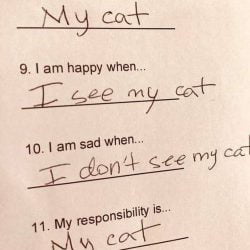 My cat
9. I am happy when...
I see my cat
10. I am sad when...
I don't see my cat
11. My responsibility is...
My cat